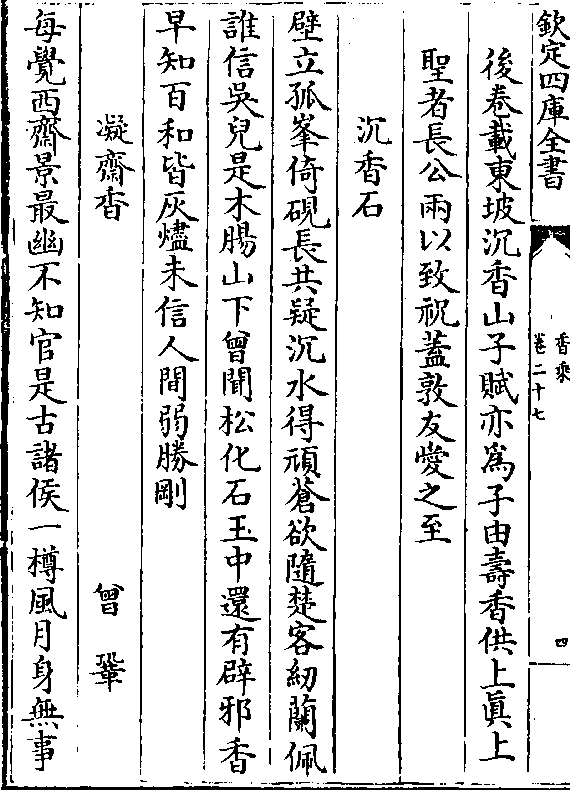 欽定四庫全書
香乘
卷二十七
四
後卷載東坡沉香山子賦亦為子由壽香供上真上
聖者長公兩以致祝蓋敦友愛之至
沉香石
壁立孤峯倚硯長共疑沉水得頑蒼欲隨楚客紉蘭佩
誰信吳兒是木腸山下曾聞松化石玉中還有辟邪香
早知百和皆灰燼未信人間弱勝剛
凝齋香
曾鞏
每覺西齋景最幽不知官是古諸侯一樽風月身無事